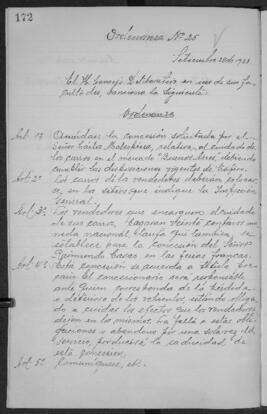 172
Ordenanza Nº 25
Setiembre 28 de 1921.
El H. Concejo Deliberativo en uso de sus fa-
cultades, sanciona la siguiente
Ordenanza
Art. 1º Acuérdase la concesión solicitada por el
Señor Carlos relativa al cuidado de
los carros en el mercado "Buenos Aires", debiendo
cumplir las disposiciones vigentes de tráfico.
Art. 2º Los carros de los vendedores deberán colocar-
se, en los sitios que indique la Inspección
General.
Art. 3º Los vendedores que encarguen el cuidado
de sus carros, abonarán veinte centavos mo-
neda nacional, tarifa que también se
establece para la concesión del Señor
Raimundo en las ferias francas.
Art. 4º Esta concesión se acuerda a título pre-
cario el concesionario será responsable
ante quien corresponda de la pérdida
o deterioro de los vehículos, estando obliga-
do a cuidar los efectos que los vendedores
dejen en los mismos. La falta a estas obli-
gaciones o abandono por una sola vez del
servicio, producirá la caducidad de
esta concesión.
Art. 5º Comuníquese, etc.